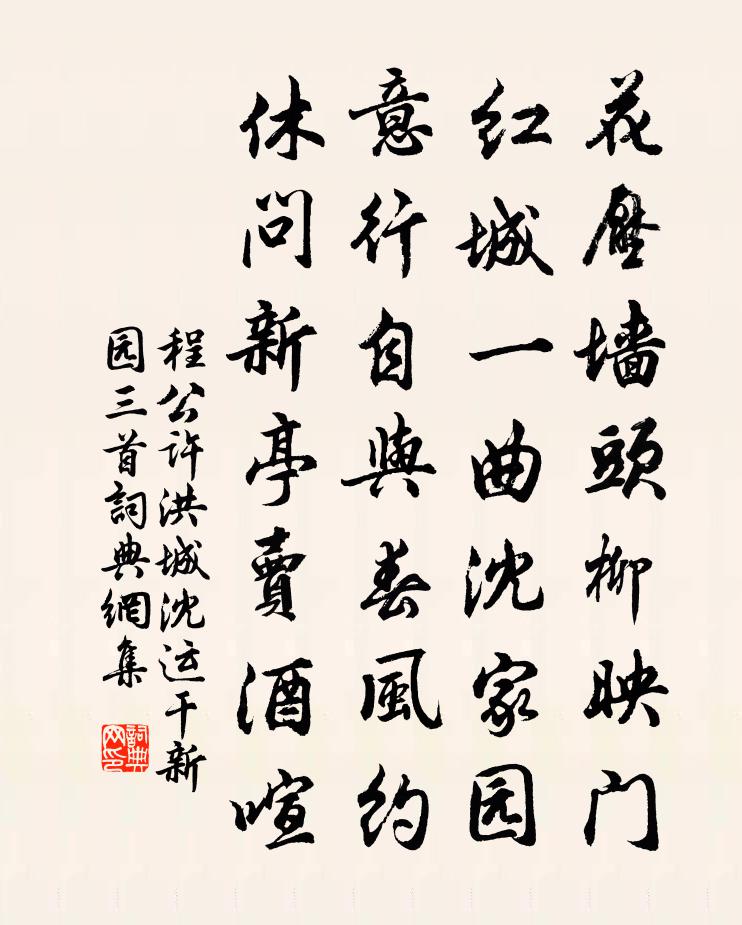 花壓墙頭柳映门
红城一曲沈家园
意行自與春風约
休问新亭賣酒喧
程公许洪城沈运干新
园三首詞典網集
詞典
网印